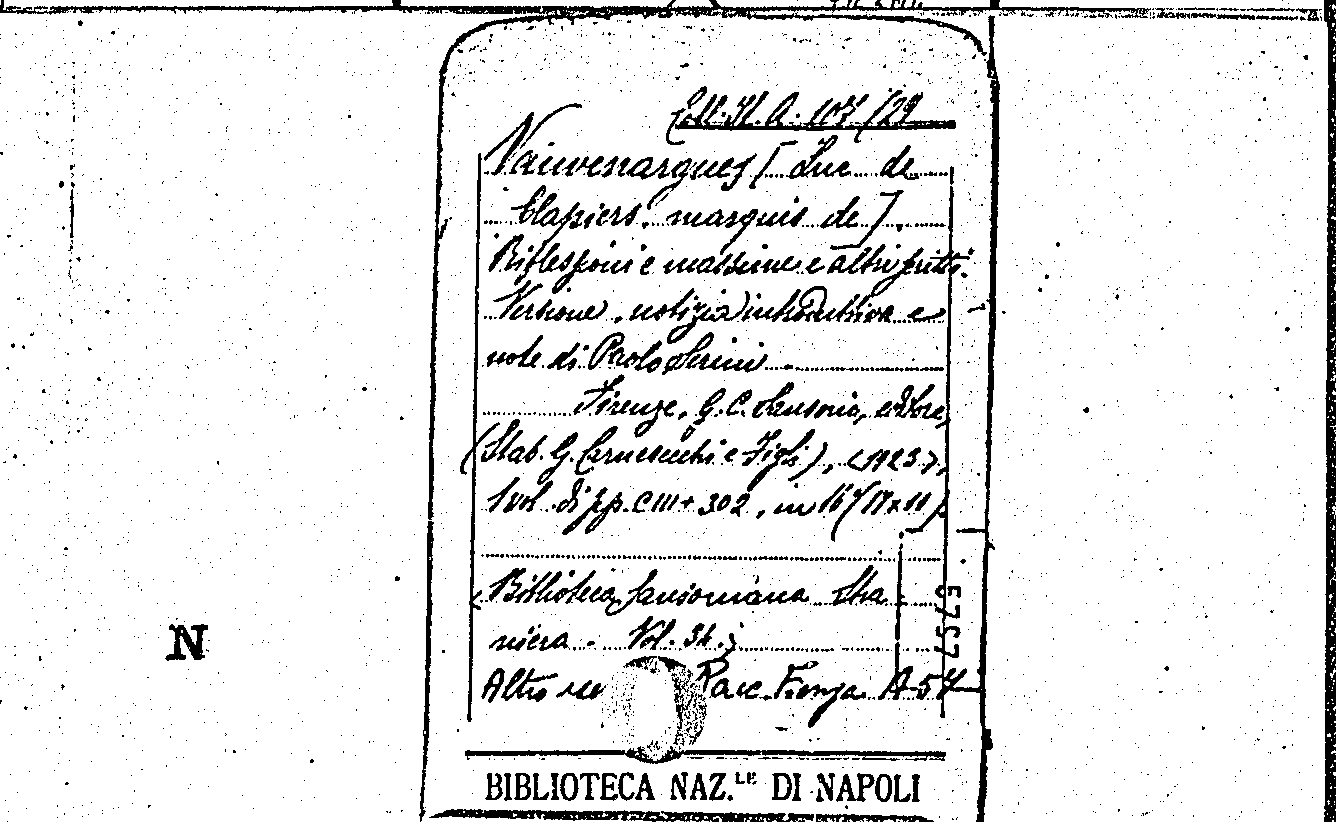 Coll. It. A. 107/29
Vauvenargues [Luc de
Clapiers, marquis de].
Riflessioni e massime e altri scritti.
Versione, notizia introduttiva e
note di Paolo Serini.
Firenze, G. C. Sansoni, editore,
(Stab. G. Carnesecchi e Figli), <1923>,
1 vol. di pp. CIII + 302, in 16° (17x11)
<Biblioteca sansoniana stra-
niera. Vol. 34.>
Altro Racc. Fienga A 54
5757
N
BIBLIOTECA NAZ.LE DI NAPOLI